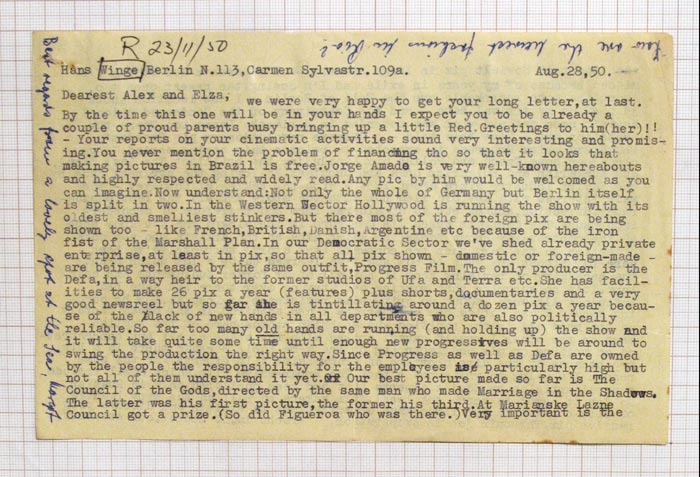 R 23/11/50
How are the newest fashions in Rio?
Hans Winge, Berlin N.113,Carmen Sylvastr.109a. Aug.28,50.
Dearest Alex and Elza,
we were very happy to get your long letter,at last.
By the time this one will be in your hands I expect you to be already a
couple of proud parents busy bringing up a little Red.Greetings to him(her)!!
- Your reports on your cinematic activities sound very interesting and promis-
ing.You never mention the problem of financing tho so that it looks that
making pictures in Brazil is free.Jorge Amado is very well-known hereabouts
and highly respected and widely read.Any pic by him would be welcomed as you
can imagine.Now understand:Not only the whole of Germany but Berlin itself
is split in two.In the Western Sector Hollywood is running the show with its
oldest and smelliest stinkers.But there most of the foreign pix are being
shown too - like French,British,Danish,Argentine etc because of the iron
fist of the Marshall Plan.In our Democratic Sector we've shed already private
enterprise,at least in pix,so that all pix shown - domestic or foreign-made -
are being released by the same outfit,Progress Film.The only producer is the
Defa,in a way heir to the former studios of Ufa and Terra etc.She has facil-
ities to make 26 pix a year (features) plus shorts,documentaries and a very
good newsreel but so far she is tintillating around a dozen pix a year becau-
se of the lack of new hands in all departments who are also politically
reliable.So far too many old hands are running (and holding up) the show and
it will take quite some time until enough new progressives will be around to
swing the production the right way.Since Progress as well as Defa are owned
by the people the responsibility for the employees is particularly high but
not all of them understand it yet. Our best picture made so far is The
Council of the Gods,directed by the same man who made Marriage in the Shadows.
The latter was his first picture,the former his third.At Marianske Lazne
Council got a prize.(So did Figueroa who was there.)Very important is the
Best regards from a lovely spot at the sea,